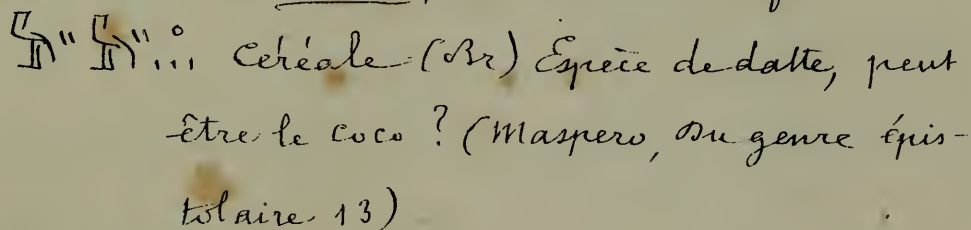 Céréale (Br) Espèce de datte, peut
être le coco ? (Maspero, Du genre épis-
tolaire 13)